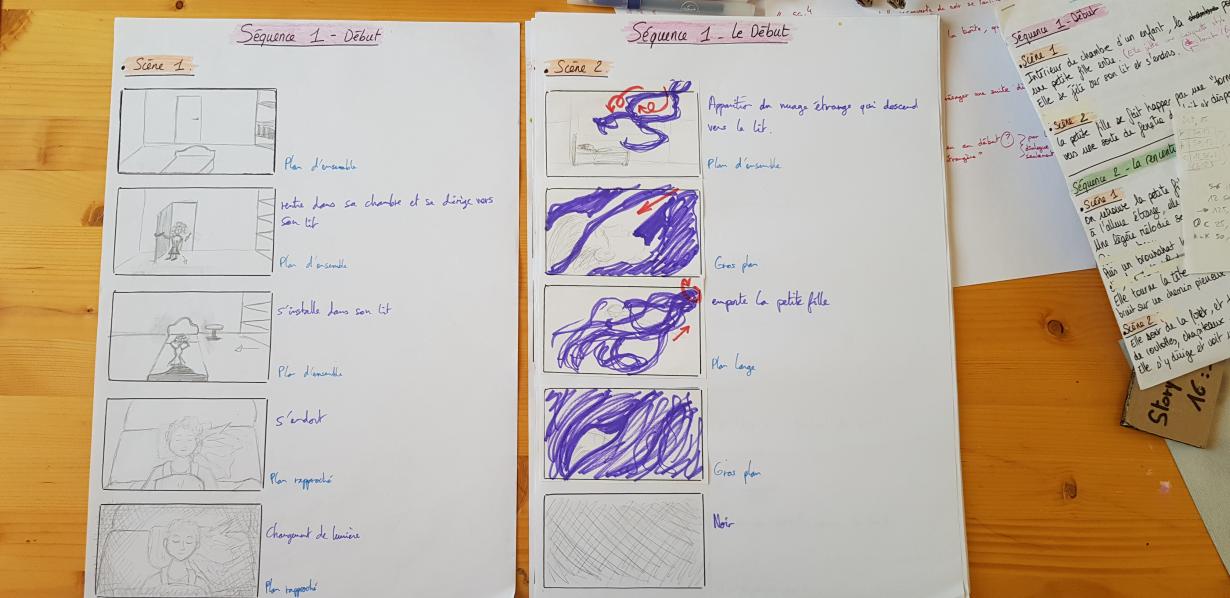 Séquence 1 - Début
Scène 1
Plan d'ensemble
rentre dans sa chambre et se dirige vers
son lit
Plan d'ensemble
s'installe dans son lit
Plan d'ensemble
s'endort
Plan rapproché
Changement de lumière
Plan rapproché
Séquence 1 - le Début
Scène 2
Apparition du nuage étrange qui descend
vers le lit.
Plan d'ensemble
Gros plan
emporte la petite fille
Plan large
Gros plan
Noir
sc.4
la boîte, qu
en au début ?
Séquence 1 - Début
Scène 1
Intérieur de chambre d'un enfant, la
une petite fille entre.
Elle se jète sur son lit et s'endors.
Scène 2
La petite fille se fait happer par une "torn
vers une sorte de fenêtre d
Séquence 2 - la rencontre
Scène 1
On retrouve la petite fi
à l'allure étrange, elle
Une légère mélodie se
un brouhaha
Elle tourne la tête
bruit sur un chemin
Scène 2
Elle sort de la forêt, et
de roulottes, chapiteaux
Elle s'y dirige et voit
Story
16: